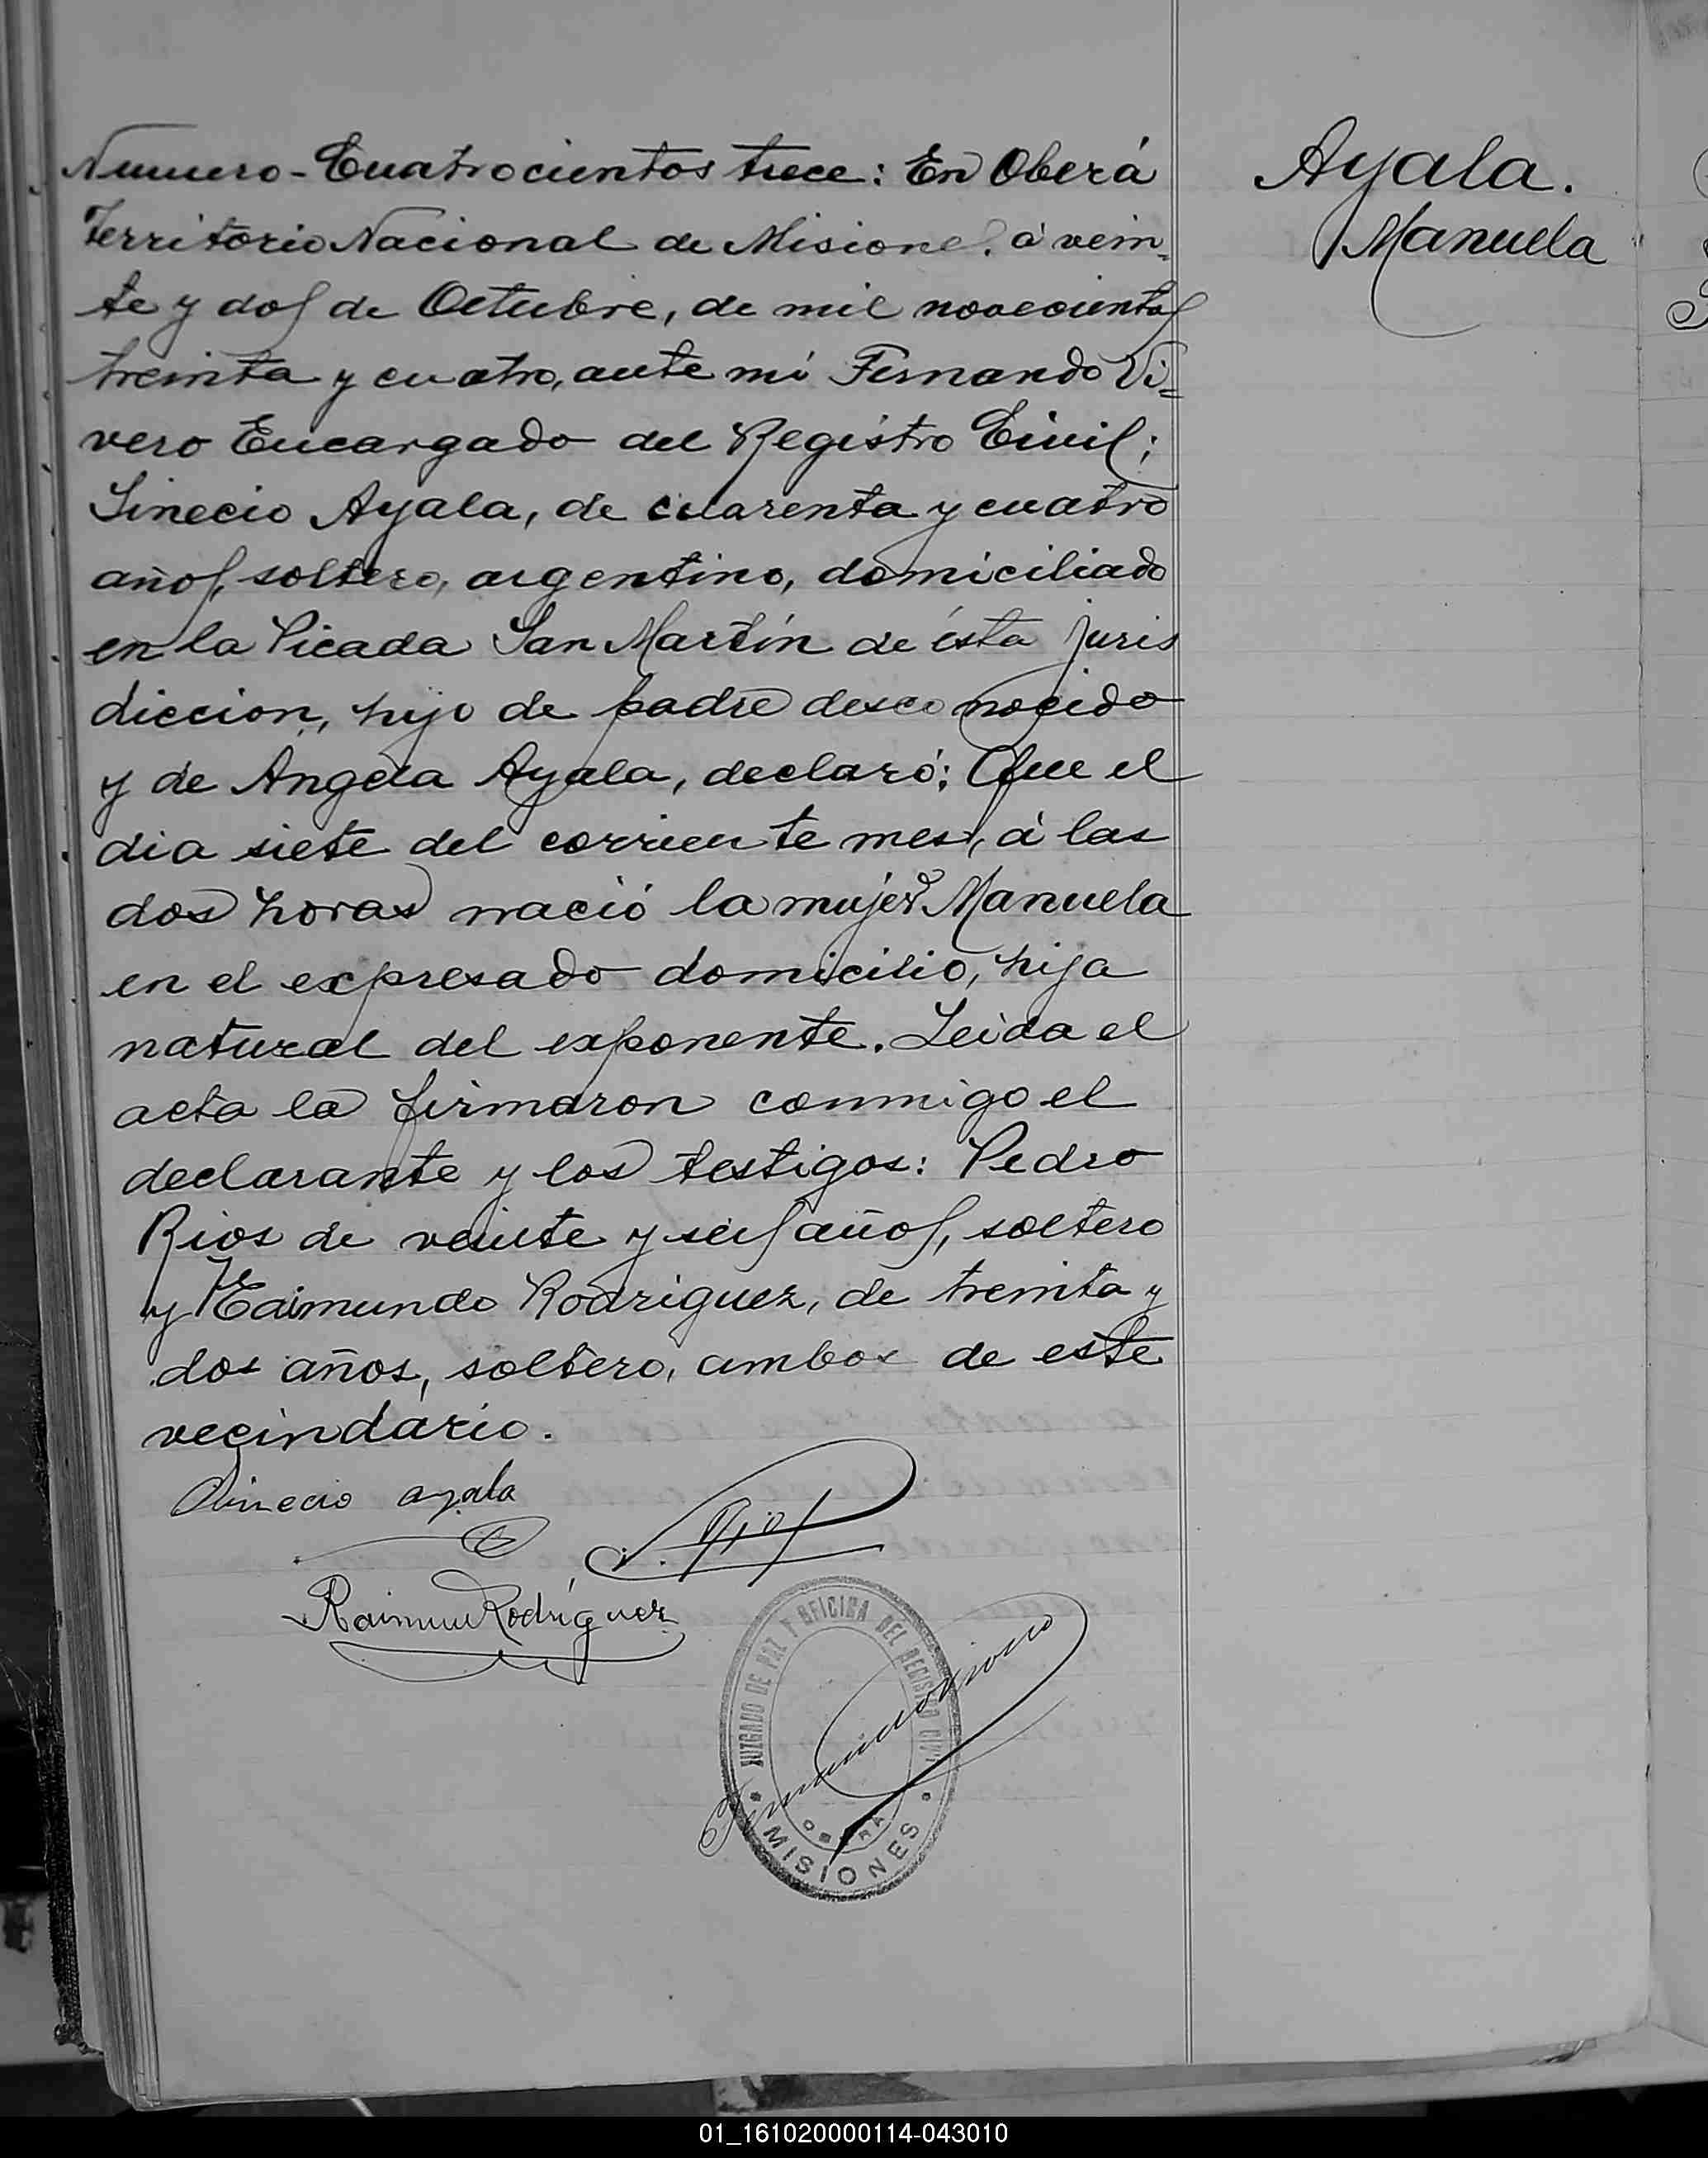 Numero-Cuatrocientos trece: En Oberá
Territorio Nacional de Misiones. á vein=
te y dos de Octubre, de mil novecientos
treinta y cuatro, ante mi Fernando Vi=
vero Encargado del Registro Civil;
Sinecio Ayala, de cuarenta y cuatro
años, soltero, argentino, domiciliado
en la Picada San Martín de ésta juris
diccion, hijo de padre desconocido
y de Angela Ayala, declaró: Que el
dia siete del corriente mes, á las
dos horas nació la mujer Manuela
en el expresado domicilio, hija
natural del exponente. Leida el
acta la firmaron conmigo el
declarante y los testigos: Pedro
Rios de veinte y seis años, soltero
y Raimundo Rodriguez, de treinta y
dos años, soltero, ambos de este
vecindario.
Ayala.
Manuela
ayala
Rios
Raimun Rodríguez
JUZGADO DE PAZ Y OFICINA DEL REGISTRO CIVIL
OBERA
MISIONES
01_161020000114-043010